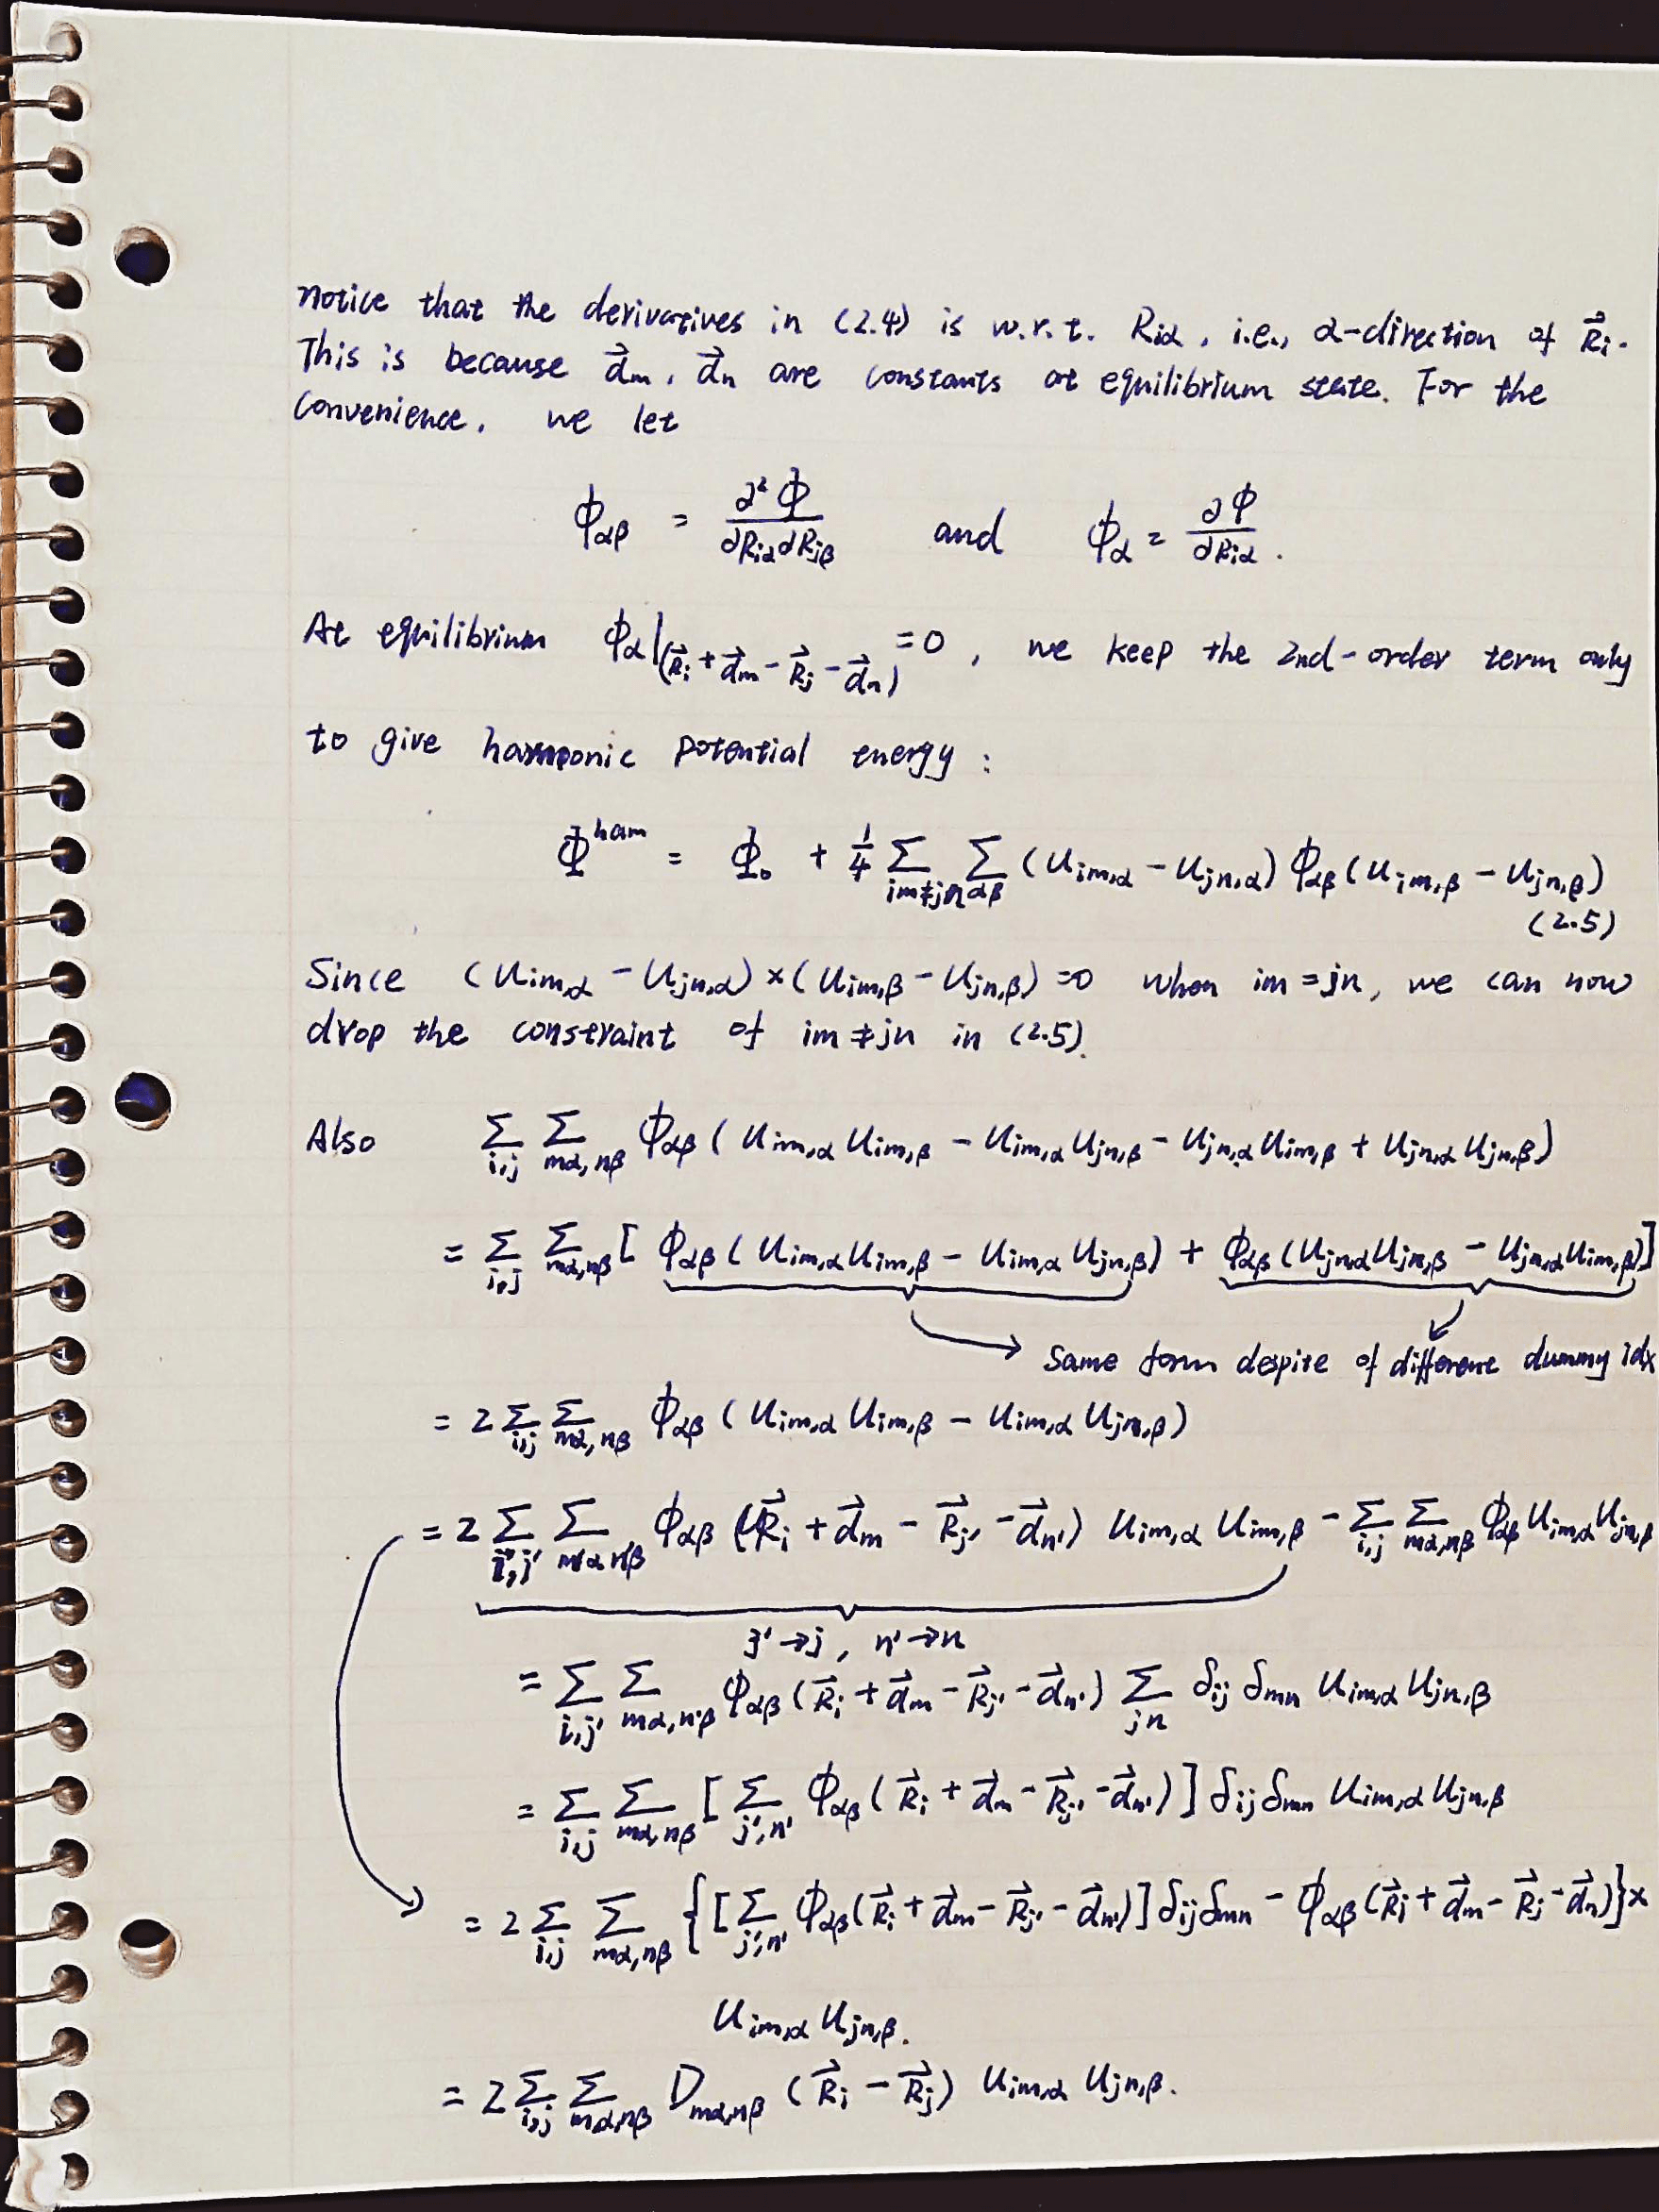 notice that the derivatives in (2.4) is w.r.t. R_{iα}, i.e., α-direction of \vec{R}_i.
This is because \vec{d}_m, \vec{d}_n are constants at equilibrium state. For the
convenience, we let
ϕ_{αβ} = \frac{∂²Φ}{∂R_{iα}∂R_{jβ}} and ϕ_α = \frac{∂Φ}{∂R_{iα}}.
At equilibrium ϕ_α|_{(\vec{R}_i + \vec{d}_m - \vec{R}_j - \vec{d}_n)} = 0, we keep the 2nd-order term only
to give harmonic potential energy:
Φ^{ham} = Φ_0 + \frac{1}{4} Σ_{im≠jn} Σ_{αβ} (u_{im,α} - u_{jn,α}) ϕ_{αβ} (u_{im,β} - u_{jn,β})
(2.5)
Since (u_{im,α} - u_{jn,α}) × (u_{im,β} - u_{jn,β}) = 0 when im = jn, we can now
drop the constraint of im ≠ jn in (2.5).
Also Σ_{i,j} Σ_{mα,nβ} ϕ_{αβ} (u_{im,α} u_{im,β} - u_{im,α} u_{jn,β} - u_{jn,α} u_{im,β} + u_{jn,α} u_{jn,β})
= Σ_{i,j} Σ_{mα,nβ} [ϕ_{αβ} (u_{im,α} u_{im,β} - u_{im,α} u_{jn,β}) + ϕ_{αβ} (u_{jn,α} u_{jn,β} - u_{jn,α} u_{im,β})]
same form despite of different dummy idx
= 2 Σ_{i,j} Σ_{mα,nβ} ϕ_{αβ} (u_{im,α} u_{im,β} - u_{im,α} u_{jn,β})
= 2 Σ_{i,j'} Σ_{mα n'β} ϕ_{αβ} (\vec{R}_i + \vec{d}_m - \vec{R}_{j'} - \vec{d}_{n'}) u_{im,α} u_{im,β} - Σ_{i,j} Σ_{mα,nβ} ϕ_{αβ} u_{im,α} u_{jn,β}
j' → j, n' → n
= Σ_{i,j'} Σ_{mα,n'β} ϕ_{αβ} (\vec{R}_i + \vec{d}_m - \vec{R}_{j'} - \vec{d}_{n'}) Σ_{jn} δ_{ij} δ_{mn} u_{im,α} u_{jn,β}
= Σ_{i,j} Σ_{mα,nβ} [Σ_{j',n'} ϕ_{αβ} (\vec{R}_i + \vec{d}_m - \vec{R}_{j'} - \vec{d}_{n'})] δ_{ij} δ_{mn} u_{im,α} u_{jn,β}
= 2 Σ_{i,j} Σ_{mα,nβ} {[Σ_{j',n'} ϕ_{αβ} (\vec{R}_i + \vec{d}_m - \vec{R}_{j'} - \vec{d}_{n'})] δ_{ij} δ_{mn} - ϕ_{αβ} (\vec{R}_i + \vec{d}_m - \vec{R}_j - \vec{d}_n)} ×
u_{im,α} u_{jn,β}.
= 2 Σ_{i,j} Σ_{mα,nβ} D_{mα,nβ} (\vec{R}_i - \vec{R}_j) u_{im,α} u_{jn,β}.